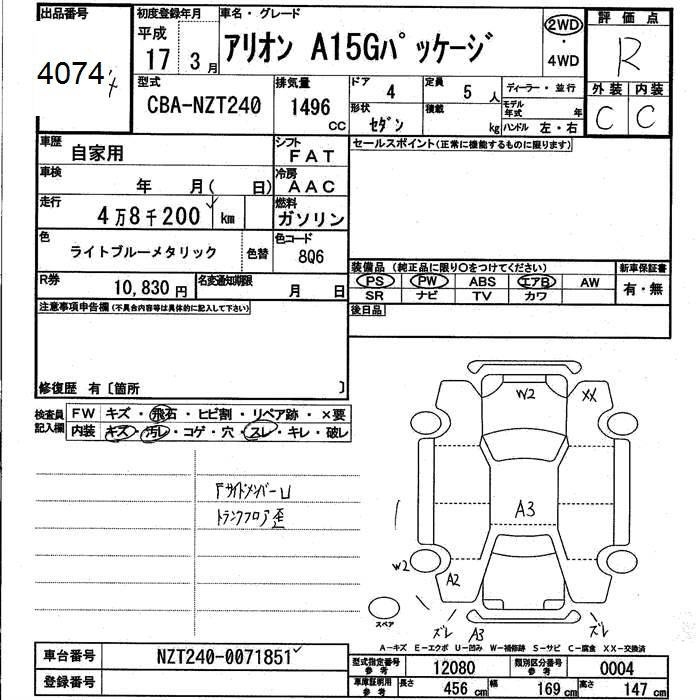 出品番号 初度登録年月 車名・グレード 評価点
4074 平成 17 3月 アリオン A15Gパッケージ 2WD ・ 4WD R
型式 排気量 ドア 定員 ディーラー・並行 外装 内装
CBA-NZT240 1496 cc 4 5 人 モデル年式 年 C C
形状 積載
セダン kg ハンドル 左・右
車歴 自家用 シフト FAT セールスポイント(正常に機能するものに限ります)
車検 年 月( 日) 冷房 AAC
走行 4万8千200 km 燃料 ガソリン
色 ライトブルーメタリック 色替 色コード 8Q6
装備品 (純正品に限り○をつけてください) 新車保証書
R券 10,830円 名変通知期限 月 日 PS PW ABS エアB AW 有・無
SR ナビ TV カワ
注意事項申告欄(不具合内容等は具体的に記入して下さい) 後日品
修復歴 有〔箇所 〕
検査員記入欄 FW キズ・飛石・ヒビ割・リペア跡・×要
内装 キズ・汚レ・コゲ・穴・スレ・キレ・破レ
W2 XX
Fサイドメンバー凹
トランクフロア歪
A3
W2 A2
スペア
ズレ A3 ズレ
A-キズ E-エクボ U-凹み W-補修跡 S-サビ C-腐食 XX-交換済
車台番号 NZT240-0071851 型式指定番号 参考 12080 類別区分番号 参考 0004
登録番号 車庫証明用 参考 長さ 456 cm 幅 169 cm 高さ 147 cm